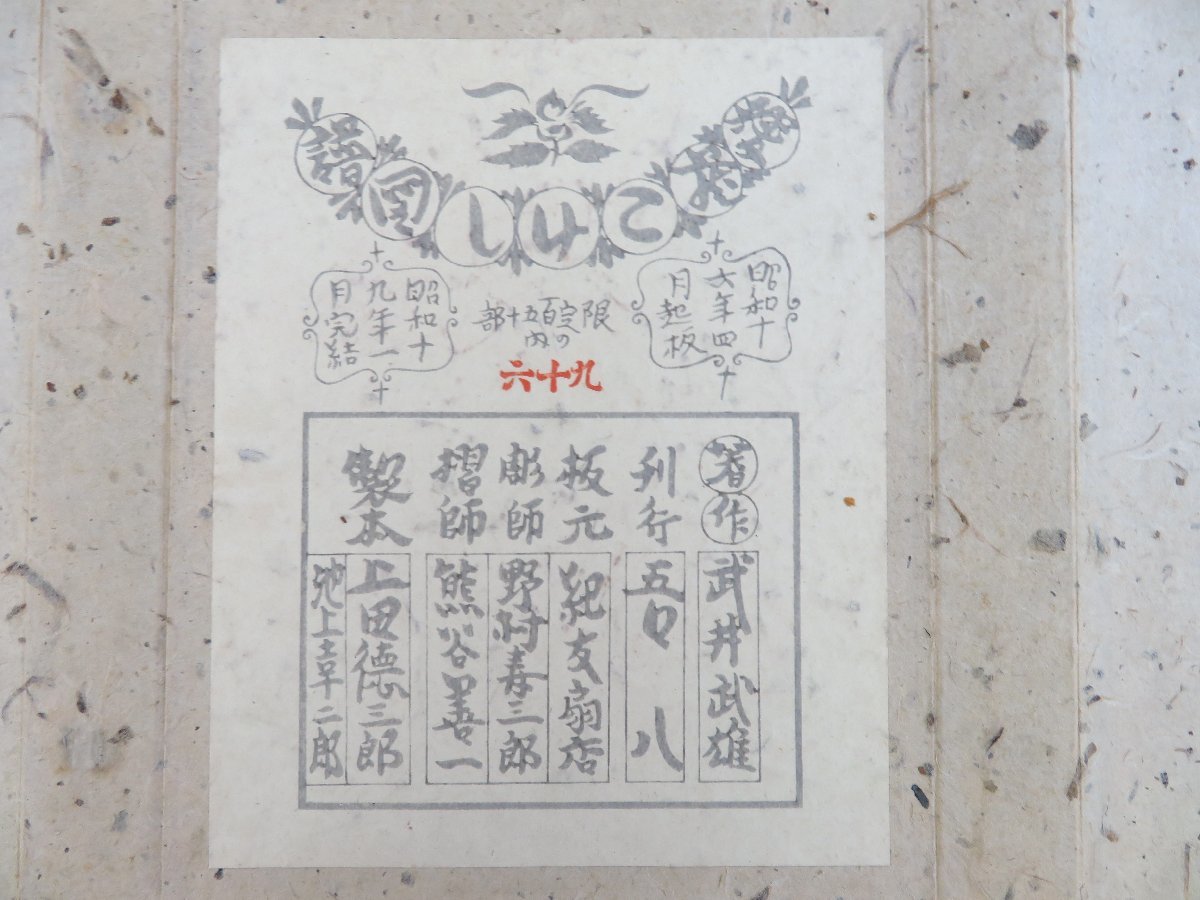 愛蔵こけし図譜
昭和十
六年四
月起板
限定百五十部
の内
九十六
昭和十
九年一
月完結
著作 武井武雄
刊行 吾八
板元 紀友扇店
彫師 野村春三郎
摺師 熊谷善一
製本 上田徳三郎
池上幸二郎